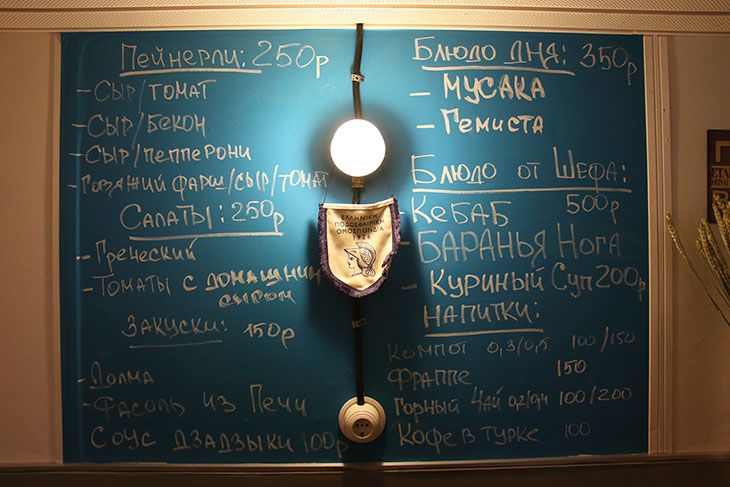 Пейнерли: 250р
- Сыр/томат
- Сыр/бекон
- Сыр/пепперони
- Говяжий фарш/сыр/томат
Салаты: 250р
- Греческий
- Томаты с домашним сыром
Закуски: 150р
- Долма
- Фасоль из печи
Соус Дзадзыки 100р
ΕΛΛΗΝΙΚΗ
ΠΟΔΟΣΦΑΙΡΙΚΗ
ΟΜΟΣΠΟΝΔΙΑ
1926
Блюдо дня: 350р
- Мусака
- Гемиста
Блюдо от Шефа:
Кебаб 500р
- Баранья Нога
- Куриный Суп 200р
Напитки:
Компот 0,3/0,5 100/150
Фраппе 150
Горный Чай 100/200
Кофе в турке 100